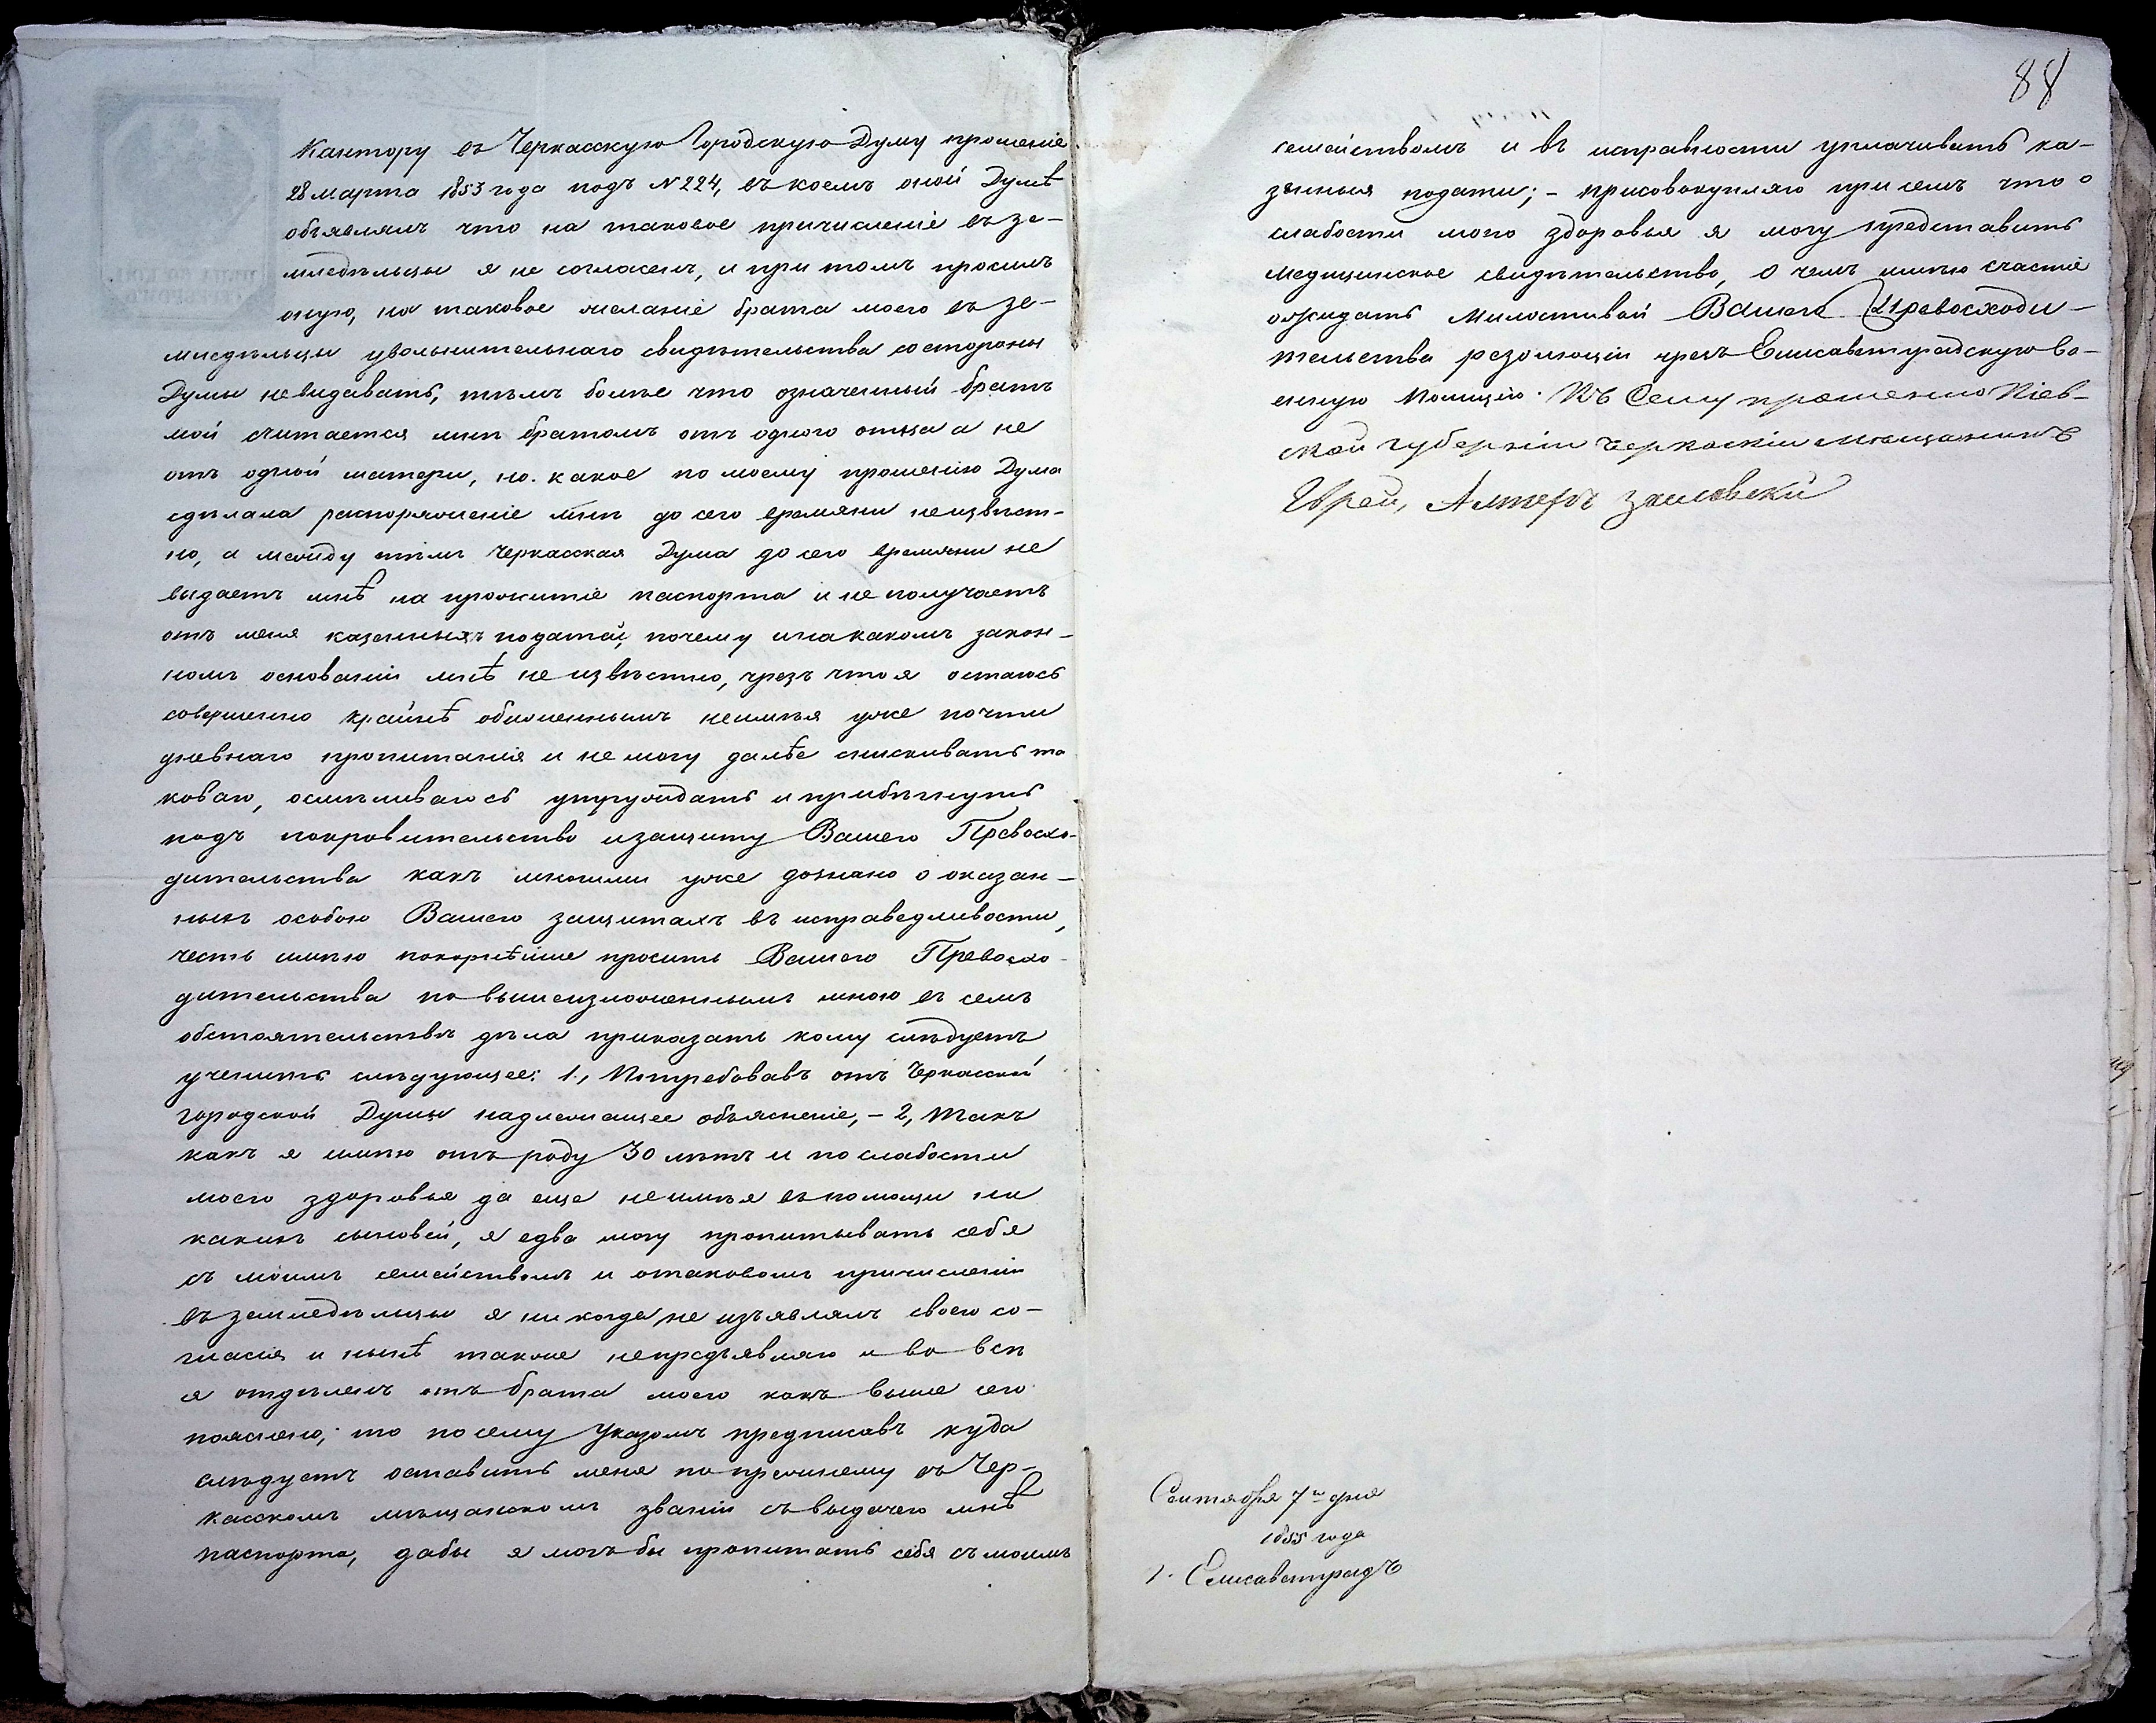 Кантору въ Черкасскую Городскую Думу прошеніе
28 марта 1853 года подъ № 224, въ коемъ оной Думѣ
объявлялъ что на таковое причисленіе въ зе-
мледѣльцы я не согласенъ, и при томъ просилъ
оную, на таковое желаніе брата моего въ зе-
мледѣльцы увольнительнаго свидѣтельства со стороны
Думы невидавать, тѣмъ болѣе что означенный братъ
мой считается мнѣ братомъ отъ одного отца а не
отъ одной матери, но какое по моему прошенію Дума
сдѣлала распоряженіе мнѣ до сего времяни неизвѣст-
но, а между тѣмъ Черкасская Дума до сего времяни не
выдаетъ мнѣ на прожитіе паспорта и не получаетъ
отъ меня казенныхъ податей, почему и на какомъ закон-
номъ основаніи мнѣ не извѣстно, чрезъ что я остаюсь
совершенно крайнѣ обиженнымъ неимѣя уже почти
дневнаго пропитанія и не могу далѣе снискивать та
коваго, осмѣливаюсь утруждать и прибѣгнуть
подъ покровительство и защиту Вашего Превосхо-
дительства какъ многими уже дознано о оказан-
ныхъ особою Вашею защитахъ въ исправедливости,
честь имѣю покорнѣйше просить Вашего Превосхо-
дительства по вышеизложеннымъ мною въ семъ
обстоятельствѣ дѣла приказать кому слѣдуетъ
учинить слѣдующее: 1., Потребовавъ отъ Черкасской
городской Думы надлежащее объясненіе, - 2, такъ
какъ я имѣю отъ роду 30 лѣтъ и по слабости
моего здоровья да еще неимѣя въ помощи ни
какихъ сыновей, я едва могу пропитывать себя
съ моимъ семействомъ и отаковомъ причисленіи
въ земледѣльцы я ни когда не изъявлялъ своего со-
гласія и нынѣ также непредъявляю и во всѣ
я отдѣленъ отъ брата моего какъ выше сего
пояснено; то по сему Указомъ предписавъ куда
слѣдуетъ оставить меня по прежнему въ Чер-
касскомъ мѣщанскомъ званіи съ выдачею мнѣ
паспорта, дабы я могъ бы пропитать себя съ моимъ
88
семействомъ и въ исправности уплачивать ка-
зенныя подати; - присовокупляю при семъ что о
слабости моего здоровья я могу представить
медицинское свидѣтельство, О чемъ имѣю счастіе
ожидать Милостивой Вашего Превосходи-
тельства резолюціи чрезъ Елисаветградскую во-
енную Полицію. Къ Сему прошенію Кіев-
ской губерніи Черкаскіи мещанинъ
Еврей, Алтеръ Заславски
Сентября 7го дня
1855 года
г. Елисаветградъ